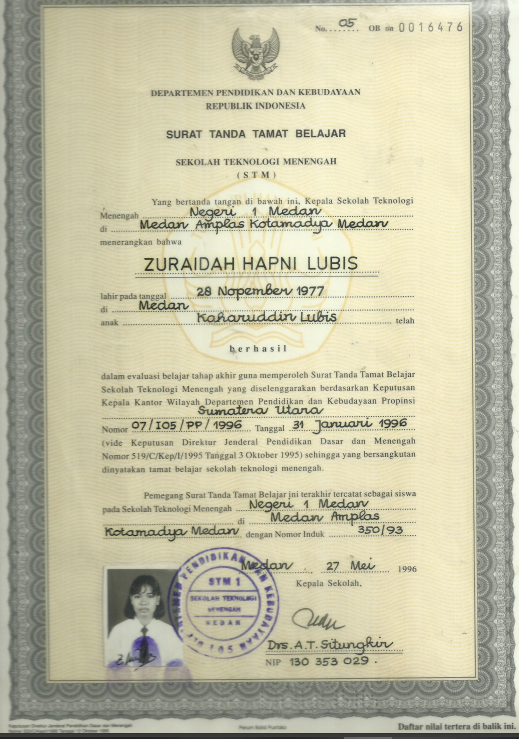 No. 05 OB om 0016476
DEPARTEMEN PENDIDIKAN DAN KEBUDAYAAN
REPUBLIK INDONESIA
SURAT TANDA TAMAT BELAJAR
SEKOLAH TEKNOLOGI MENENGAH
( S T M )
Yang bertanda tangan di bawah ini, Kepala Sekolah Teknologi
Menengah Negeri 1 Medan
di Medan Amplas Kotamadya Medan
menerangkan bahwa
ZURAIDAH HAPNI LUBIS
lahir pada tanggal 28 Nopember 1977
di Medan
anak Kaharuddin Lubis telah
berhasil
dalam evaluasi belajar tahap akhir guna memperoleh Surat Tanda Tamat Belajar
Sekolah Teknologi Menengah yang diselenggarakan berdasarkan Keputusan
Kepala Kantor Wilayah Departemen Pendidikan dan Kebudayaan Propinsi
Sumatera Utara
Nomor 07/I05/PP/1996 Tanggal 31 Januari 1996
(vide Keputusan Direktur Jenderal Pendidikan Dasar dan Menengah
Nomor 519/C/Kep/I/1995 Tanggal 3 Oktober 1995) sehingga yang bersangkutan
dinyatakan tamat belajar sekolah teknologi menengah.
Pemegang Surat Tanda Tamat Belajar ini terakhir tercatat sebagai siswa
pada Sekolah Teknologi Menengah Negeri 1 Medan
di Medan Amplas
Kotamadya Medan dengan Nomor Induk 350/93
Medan, 27 Mei 1996
Kepala Sekolah,
STM 1
SEKOLAH TEKNOLOGI
MENENGAH
MEDAN
Drs. A.T. Situngkir
NIP 130 353 029.
Daftar nilai tertera di balik ini.